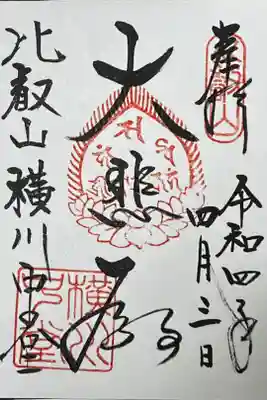 奉拝
令和四年
四月三日
大悲殿
比叡山横川中堂